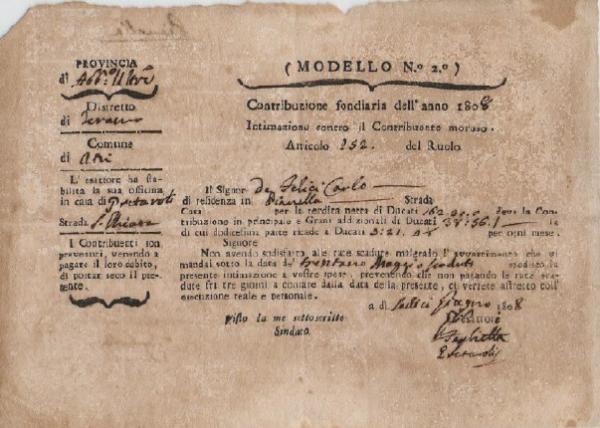 PROVINCIA
di
Distretto
di Teramo
Comune
di Atri
L'esattore ha sta-
bilita la sua officina
in casa di
Strada S. Chiara
I Contribuenti son
prevenuti, venendo a
pagare il loro debito,
di portar seco il pre-
sente.
( MODELLO N.º 2.º )
Contribuzione fondiaria dell'anno 1808
Intimazione contro il Contribuente moroso.
Articolo 252. del Ruolo.
Il Signor De Felici Carlo
di residenza in Strada
Casa per la rendita netta di Ducati deve la Con-
tribuzione in principale e Grani addizionali di Ducati la
di cui dodicesima parte ricade a Ducati per ogni mese.
Signore
Non avendo sodisfatto alle rate scadute malgrado l'avvertimento che vi
mandai sotto la data de' Maggio
presente intimazione a vostre spese, prevenendo che non pagando le rate sca-
dute fra tre giorni a contare dalla data della presente, ci verrete astretto coll'
esecuzione reale e personale.
a dì Giugno 1808
Visto da me sottoscritto
Sindaco.